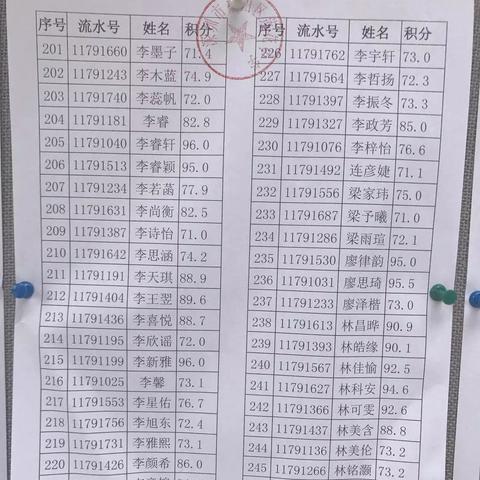 序号 流水号 姓名 积分
201 11791660 李墨子
202 11791243 李木蓝 74.9
203 11791740 李蕊帆 72.0
204 11791181 李睿 82.8
205 11791040 李睿轩 96.0
206 11791513 李睿颖 95.0
207 11791234 李若菡 77.9
208 11791631 李尚衡 82.5
209 11791387 李诗怡 71.0
210 11791642 李思涵 74.2
211 11791191 李天琪 88.9
212 11791404 李王翌 89.6
213 11791436 李喜悦 88.7
214 11791195 李欣谣 72.0
215 11791199 李新雅 96.0
216 11791025 李馨 73.1
217 11791553 李星佑 76.7
218 11791756 李旭东 72.4
219 11791731 李雅熙 73.1
220 11791426 李颜希 86.0
序号 流水号 姓名 积分
226 11791762 李宇轩 73.0
227 11791564 李哲扬 72.3
228 11791397 李振冬 73.3
229 11791327 李政芳 85.0
230 11791076 李梓怡 76.6
231 11791492 连彦婕 71.1
232 11791556 梁家玮 75.0
233 11791687 梁予曦 71.0
234 11791286 梁雨瑄 72.1
235 11791530 廖律韵 95.0
236 11791031 廖思琦 95.5
237 11791233 廖泽楷 73.0
238 11791613 林昌晔 90.9
239 11791393 林皓缘 90.1
240 11791567 林佳愉 92.5
241 11791627 林科安 94.6
242 11791366 林可雯 92.6
243 11791437 林美含 88.8
244 11791136 林美伦 73.2
245 11791266 林铭灏 73.2